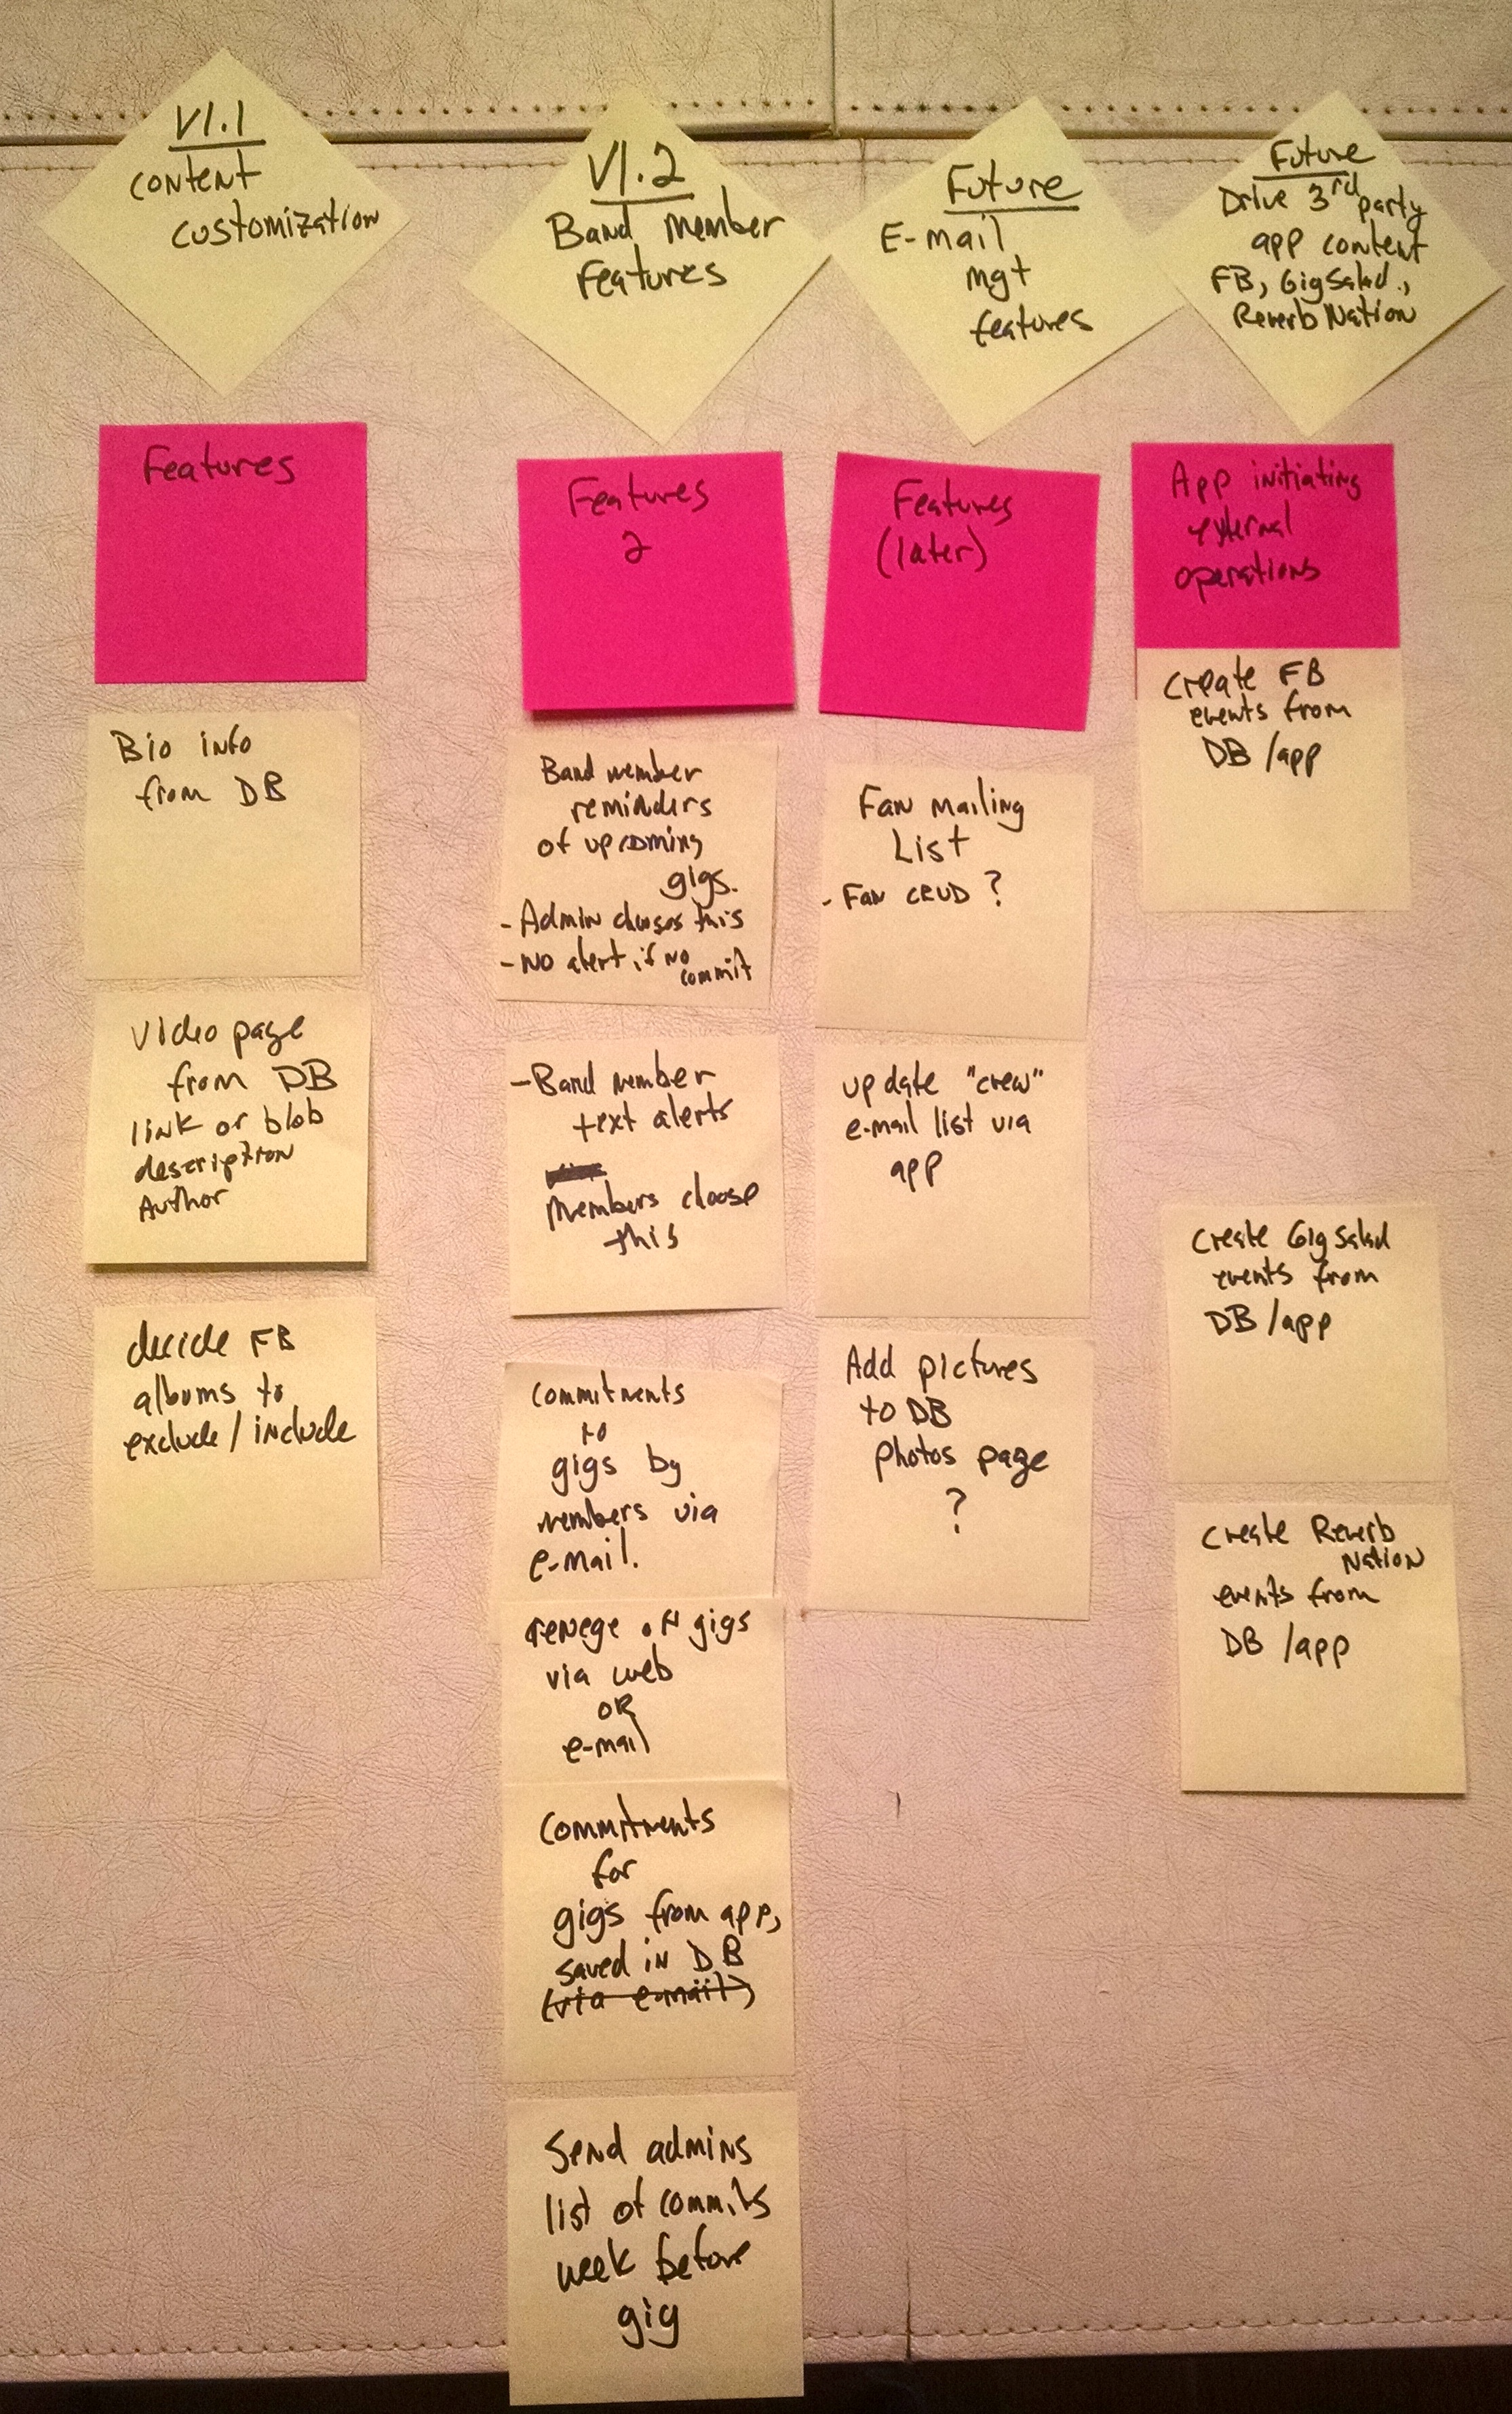 V1.1
content
customization
Features
Bio info
from DB
Video page
from DB
link or blob
description
Author
decide FB
albums to
exclude / include
V1.2
Band member
Features
Features
2
Band member
reminders
of upcoming
gigs.
- Admin chooses this
- No alert if no
commit
- Band member
text alerts
Members choose
this
Commitments
to
gigs by
members via
e-mail.
renege on gigs
via web
OR
e-mail
Commitments
for
gigs from app,
saved in DB
(via e-mail)
Send admins
list of commits
week before
gig
Future
E-mail
mgt
features
Features
(later)
Fan mailing
List
- Fan CRUD ?
update "crew"
e-mail list via
app
Add pictures
to DB
photos page
?
Future
Drive 3rd party
app content
FB, GigSalad.,
ReverbNation
App initiating
external
operations
Create FB
events from
DB /app
Create GigSalad
events from
DB /app
Create Reverb
Nation
events from
DB /app